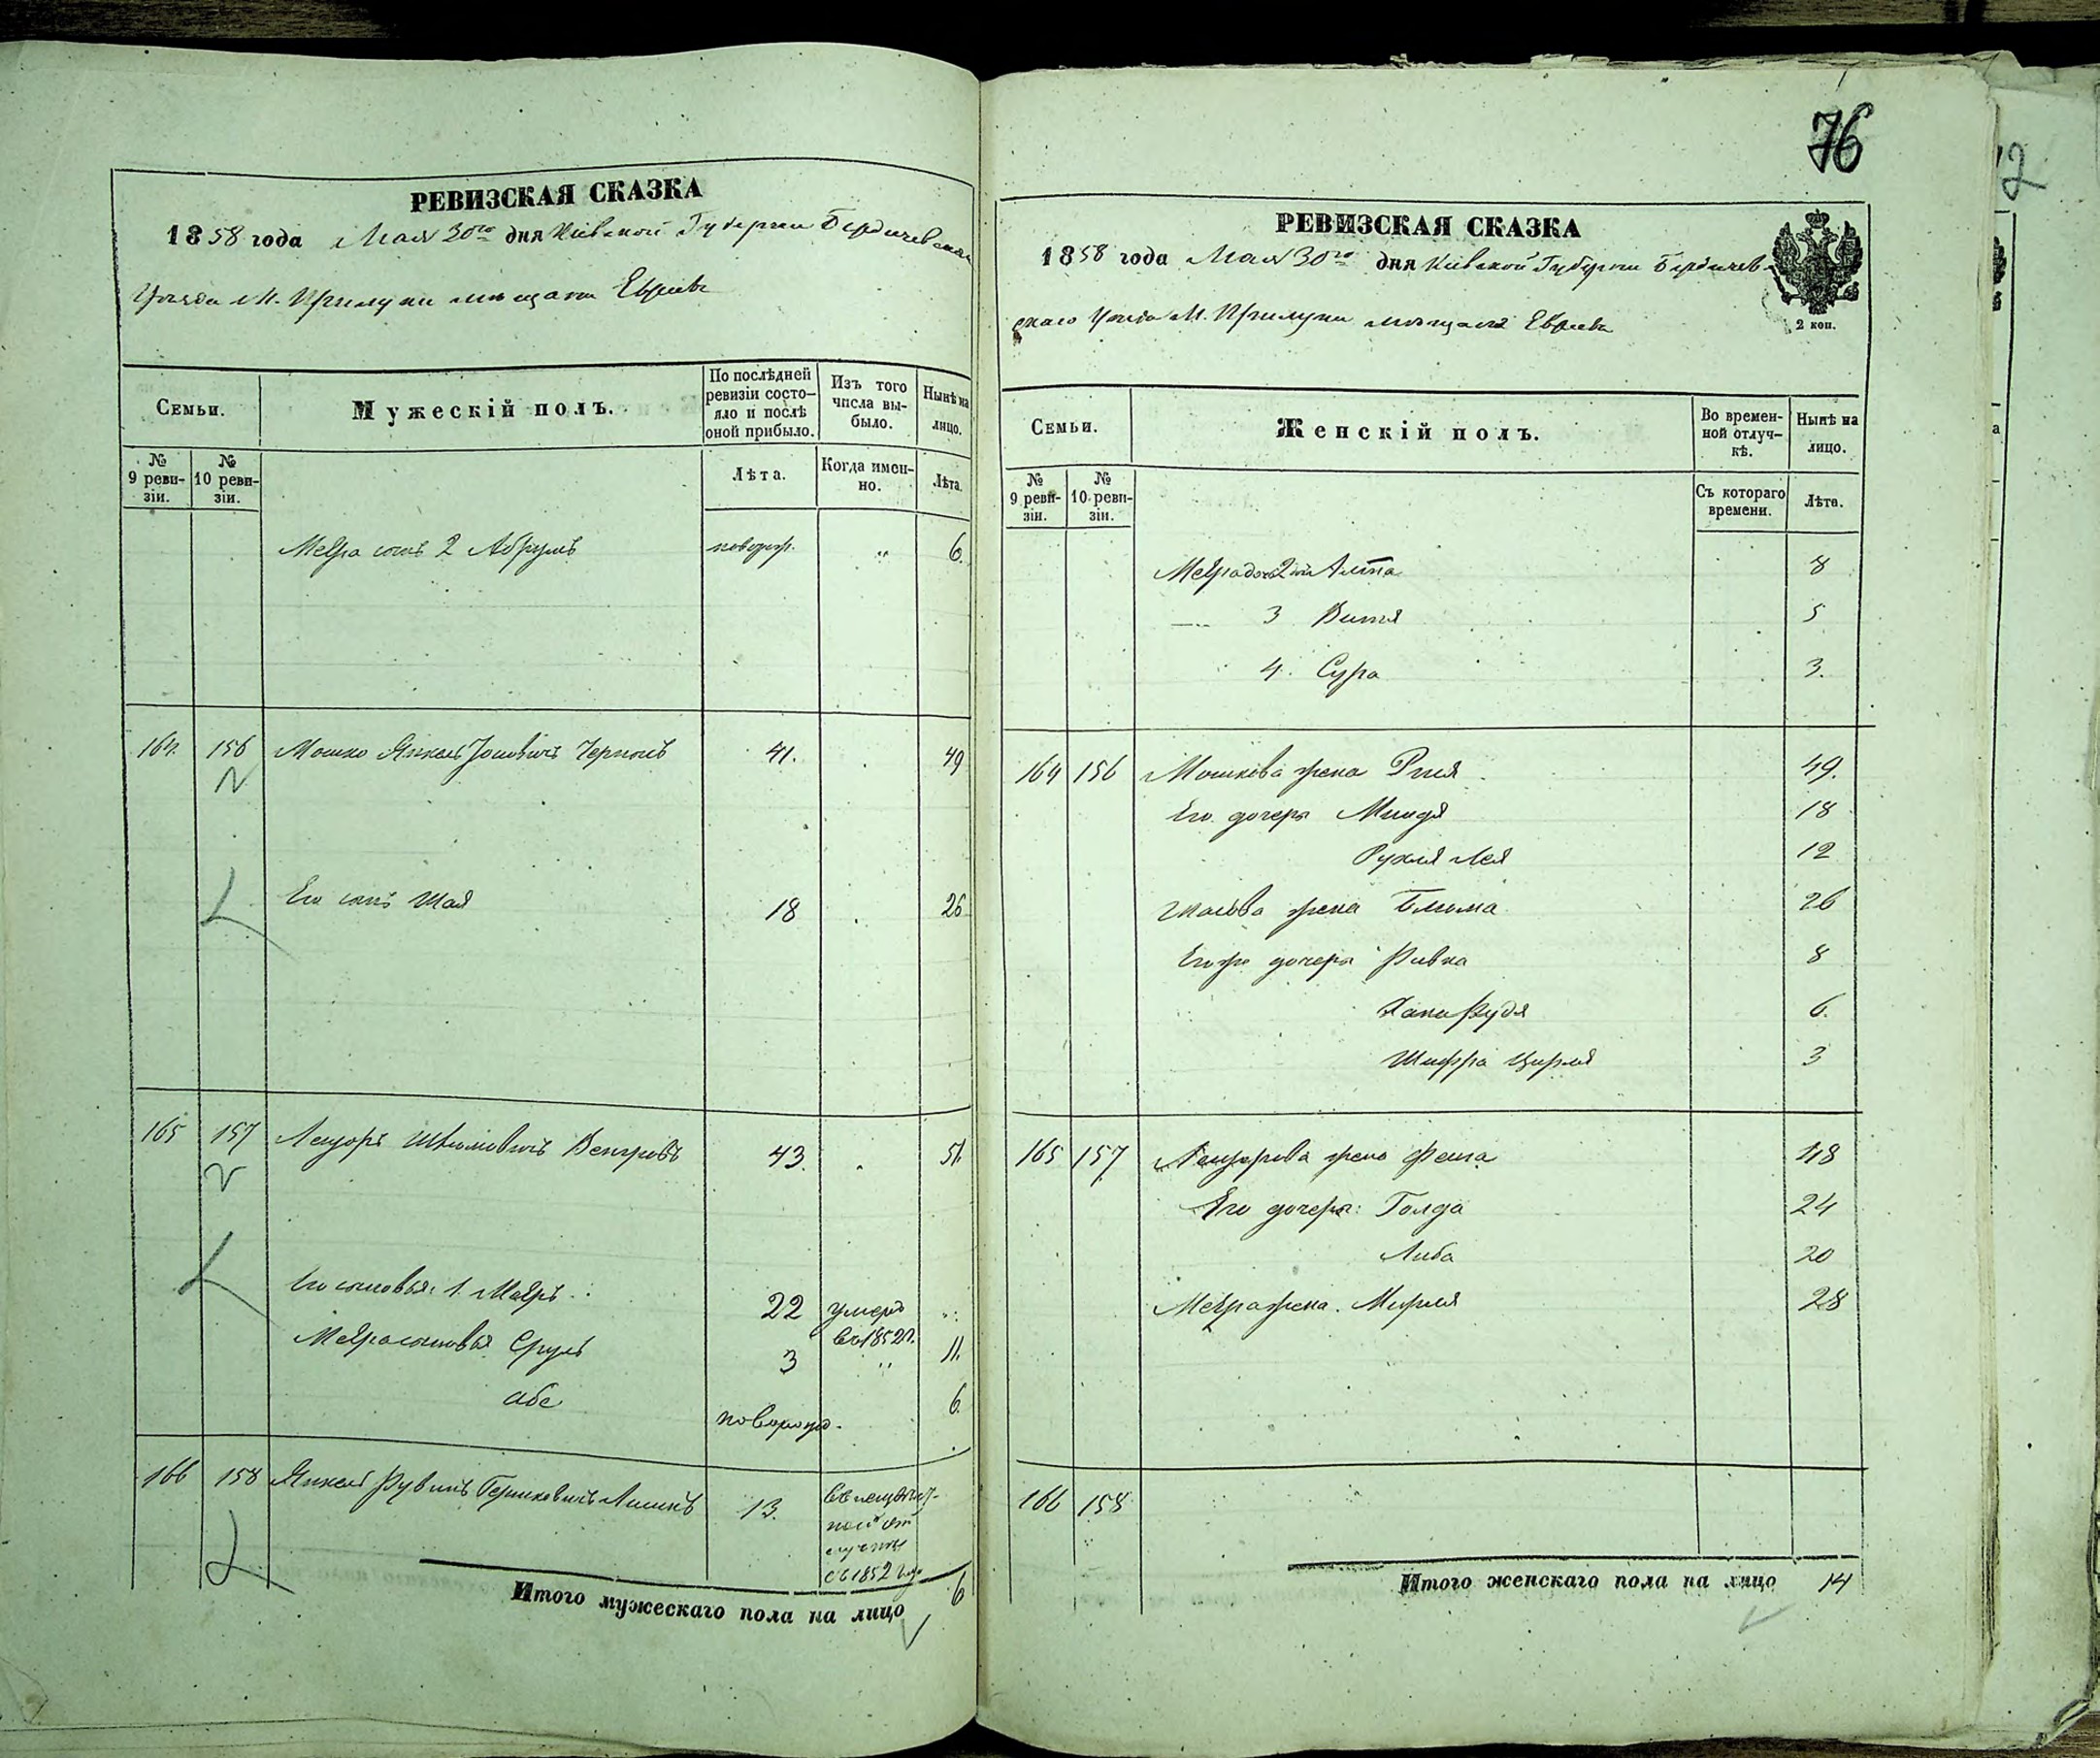 76
РЕВИЗСКАЯ СКАЗКА
1858 года Мая 30го дня Кіевской Губерніи Бердичевскаго
Уѣзда М. Прилуки мѣщанъ Евреевъ
Семьи.
Мужескій полъ.
По послѣдней ревизіи состояло и послѣ оной прибыло.
Изъ того числа выбыло.
Нынѣ на лицо.
№ 9 ревизіи.
№ 10 ревизіи.
Лѣта.
Когда именно.
Лѣта.
Меера сынъ 2 Абрумъ новорож. " 6.
164. 156 Мошко Янкель Іосіовичъ 41. 49
Его сынъ Шая 18 26
165 157 Лейзоръ Шлiомовичъ Венгровъ 43. 51.
Его сыновья: 1. Мееръ 22 умеръ
въ 1852 г.
Меера сыновья Сруль 3 " 11.
Абе новорожд. 6.
166 158 Янкель Рувинъ Гершковичъ 13.
съ 1852 года
Итого мужескаго пола на лицо 6
РЕВИЗСКАЯ СКАЗКА
1858 года Мая 30го дня Кіевской Губерніи Бердичев-
скаго Уѣзда М. Прилуки мѣщанъ Евреевъ
2 коп.
Семьи.
Женскій полъ.
Во временной отлучкѣ.
Нынѣ на лицо.
№ 9 ревизіи.
№ 10 ревизіи.
Съ котораго времени.
Лѣта.
Меера дочь 2 Алта 8
3 5
4. Сура 3.
164 156 Мошкова жена 49.
Его дочери Миндя 18
Рухля Лея 12
Шаева жена Блюма 26
Его же дочери Ривка 8
Хана Рудя 6.
Шифра Цирля 3
165 157 Лейзорова жена Фейга 48
Его дочери: Голда 24
Либа 20
Меера жена Мирля 28
166 158
Итого женскаго пола на лицо 14